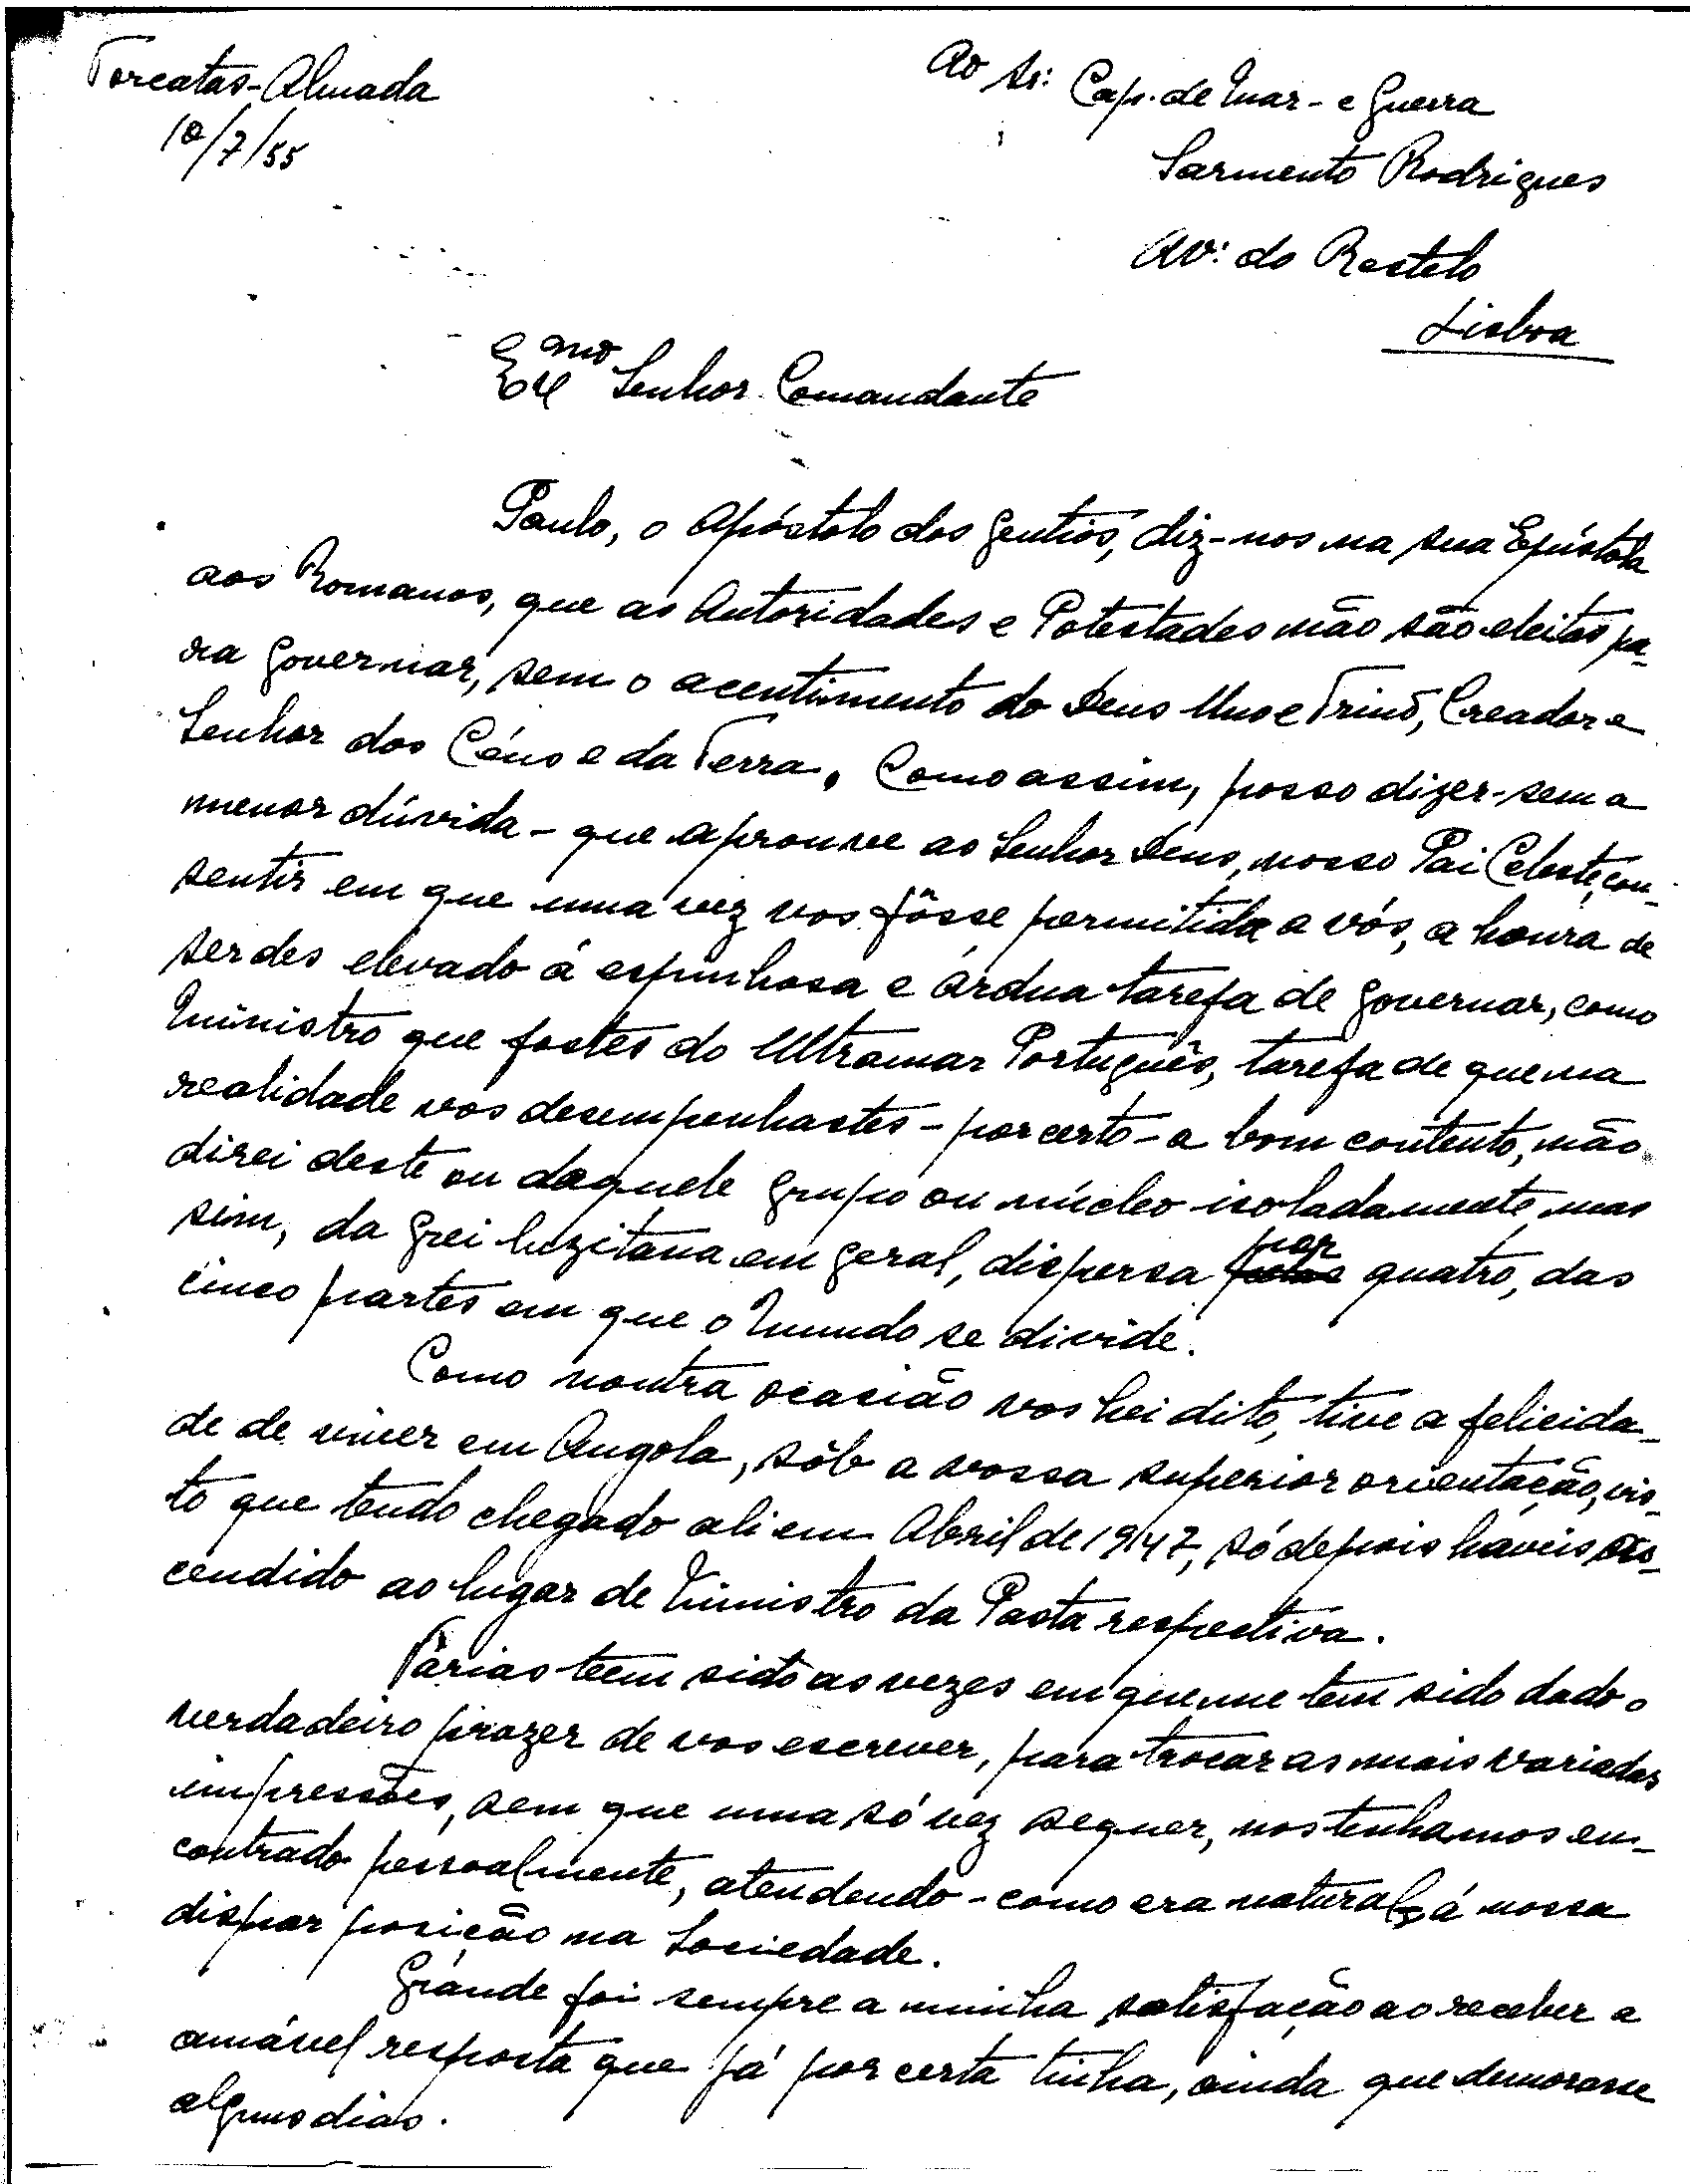 Torcatas-Almada
10/7/55
Ao Sr: Cap. de Mar-e Guerra
Sarmento Rodrigues
Av: do Restelo
Lisboa
Exmo Senhor Comandante
Paulo, o Apóstolo dos gentios, diz-nos na sua Epístola
aos Romanos, que as Autoridades e Potestades não são eleitas pa-
ra governar, sem o acentimento do Deus Uno e Trino, Creador e
Senhor dos Céus e da Terra. Como assim, posso dizer-sem a
menor dúvida-que aprouve ao Senhor Deus, nosso Pai Celeste, con-
sentir em que uma vez vos fôsse permitida a vós, a honra de
serdes elevado á espinhosa e árdua tarefa de governar, como
Ministro que fostes do Ultramar Português, tarefa de que na
realidade vos desempenhastes-por certo-a bom contento, não
direi deste ou daquele grupo ou núcleo isoladamente, mas
sim, da grei luzitana em geral, dispersa por quatro, das
cinco partes em que o Mundo se divide.
Como noutra ocasião vos hei dito, tive a felicida-
de de viver em Angola, sôb a vossa superior orientação, vis-
to que tendo chegado ali em Abril de 1947, só depois havéis as-
cendido ao lugar de Ministro da Pasta respectiva.
Várias teem sido as vezes em que me tem sido dado o
verdadeiro prazer de vos escrever, para trocar as mais variadas
impressões, sem que uma só vez sequer, nos tenhamos en-
contrado pessoalmente, atendendo-como era natural, á nossa
dispar posição na Sociedade.
Grande foi sempre a minha satisfação ao receber a
amável resposta que já por certa tinha, ainda que demorasse
alguns dias.